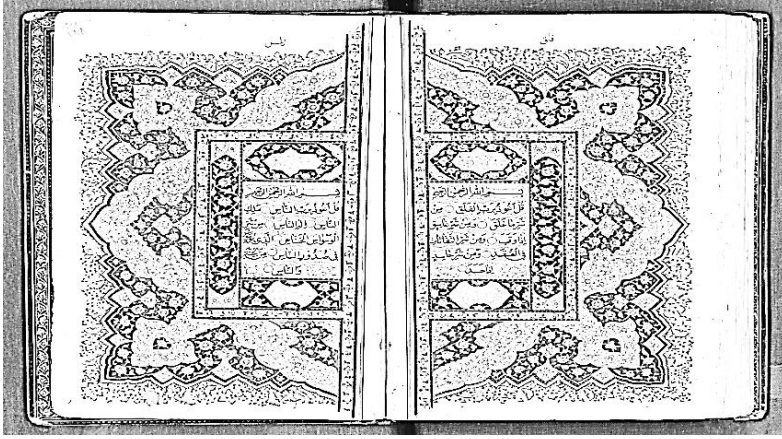 فلق
بسم الله الرحمن الرحيم
قل أعوذ برب الفلق من
شر ما خلق ومن شر غاسق
إذا وقب ومن شر النفاثات
في العقد ومن شر حاسد
إذا حسد
ناس
بسم الله الرحمن الرحيم
قل أعوذ برب الناس ملك
الناس إله الناس من شر
الوسواس الخناس الذي يوسوس
في صدور الناس من الجنة
والناس